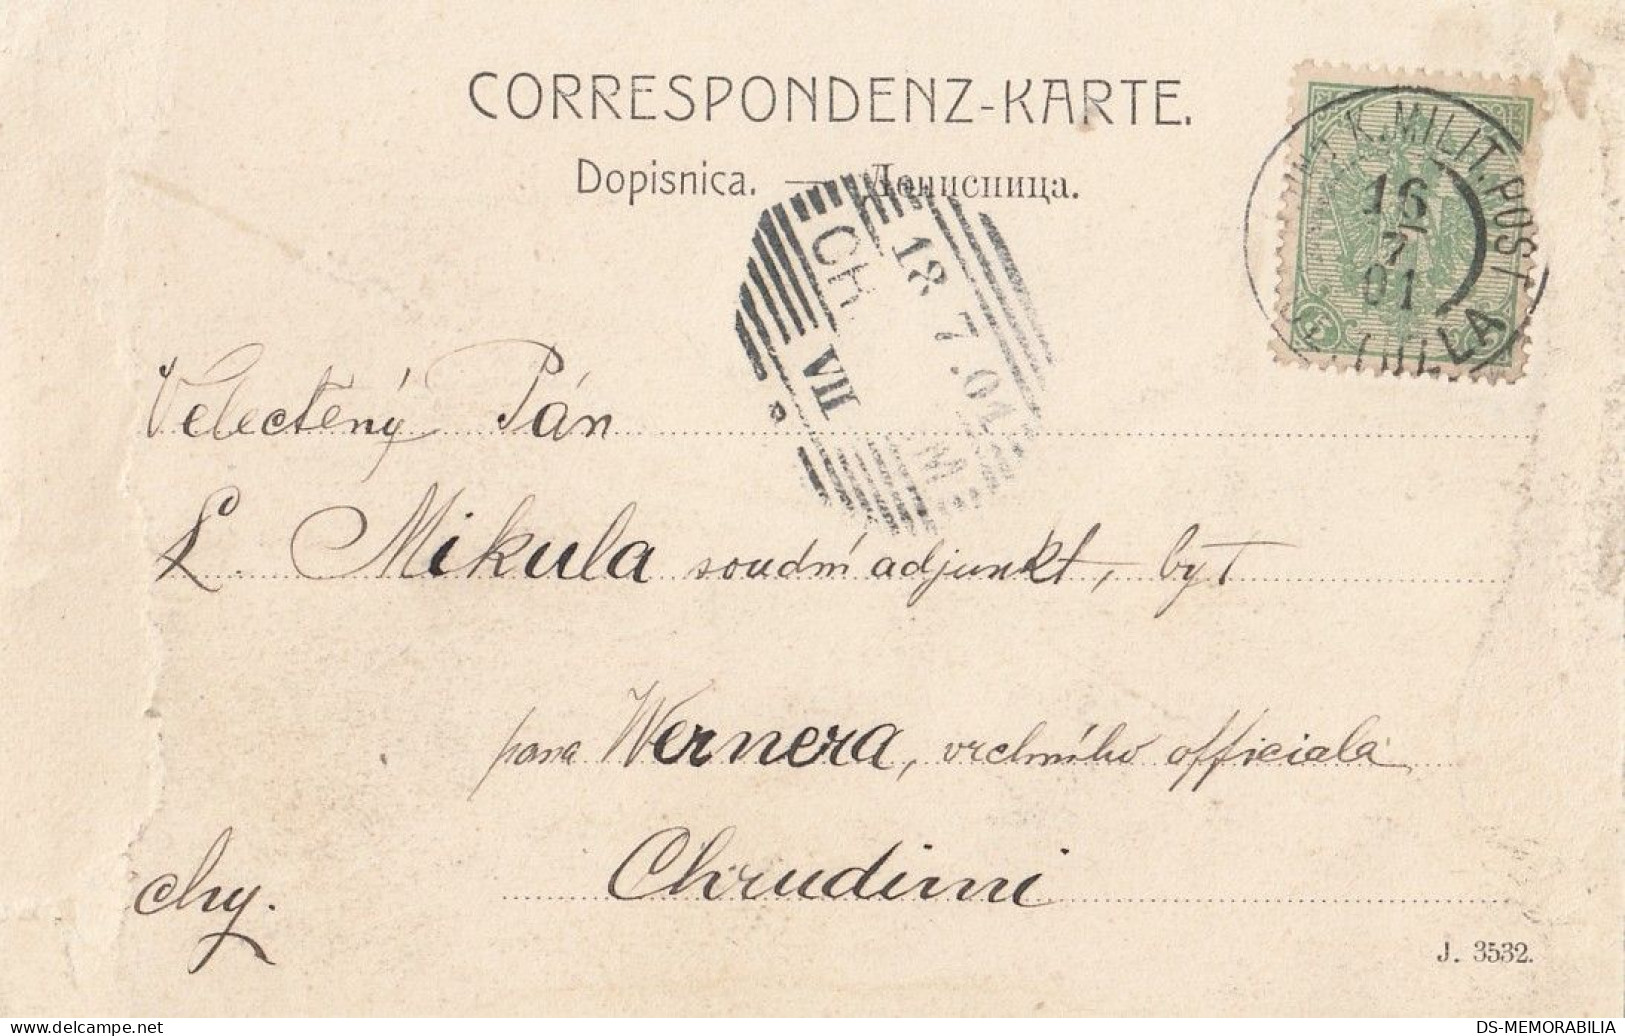 CORRESPONDENZ-KARTE.
Dopisnica. — Дописница.
K. MILIT. POST
16
7
01
5
18 7.01
CH
VII
M.
Velectěný Pán
L. Mikula soudní adjunkt, byt
pana Wernera, vrchního officiala
Chrudimi
chy.
J. 3532.
DS-MEMORABILIA